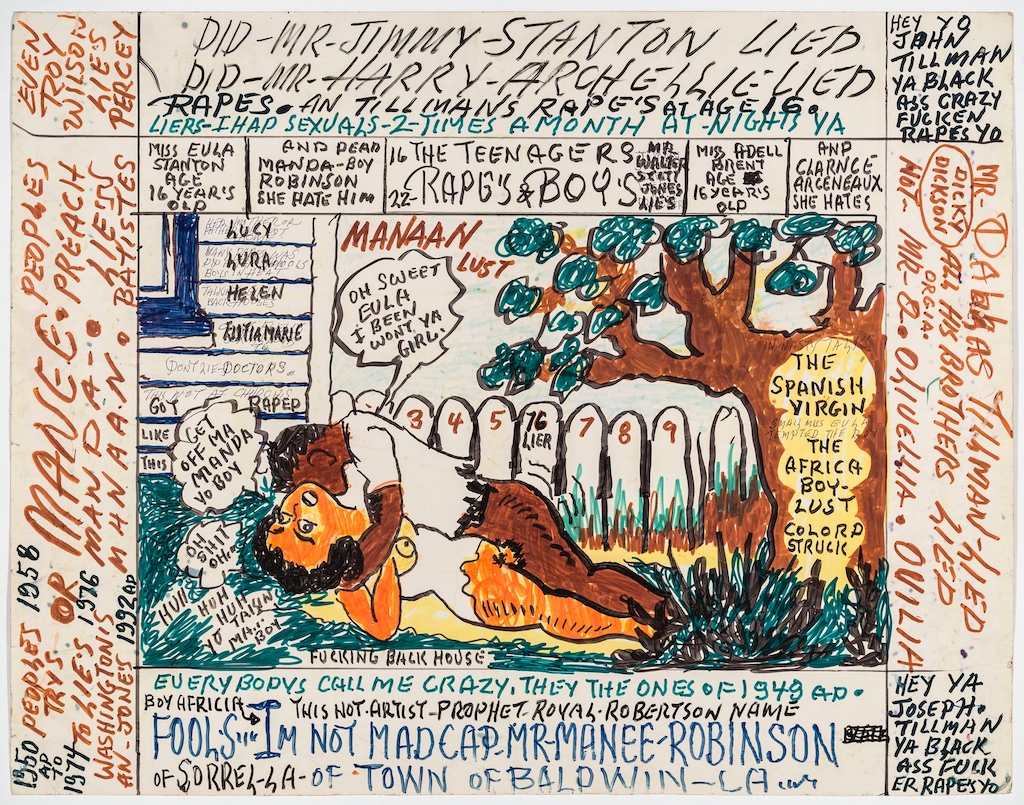 DID-MR-JIMMY-STANTON LIED
DID-MR-HARRY-ARCHELLIE-LIED
RAPES. AN TILLMANS RAPE'S AT AGE 16.
LIERS-I HAD SEXUALS-2-TIMES A MONTH AT-NIGHTS YA
EVEN
ROY
WILSON
LIE'S
PERCEY
HEY YO
JOHN
TILLMAN
YA BLACK
ASS CRAZY
FUCKEN
RAPES YO
MISS EULA
STANTON
AGE
16 YEAR'S
OLD
AND DEAD
MANDA-BOY
ROBINSON
SHE HATE HIM
16 THE TEENAGERS
22- RAPE'S & BOY'S
MR
WALTER
JONES
LIE'S
MISS ADELL
BRENT
AGE
16 YEAR'S
OLD
AND
CLARNCE
ARCENEAUX
SHE HATES
LUCY
LURA
HELEN
RUTIA MARIE
DONT LIE-DOCTORS.
GOT RAPED
LIKE
THIS
MANAAN
LUST
OH SWEET
EULA
I BEEN
WONT YA
GIRL.
3 4 5 16 7 8 9
LIER
GET
OFF MA
MANDA
YO BOY
OH
SHIT
OH.
HUH
HUH
HUH
YO TAKEN
MA. BOY
THE
SPANISH
VIRGIN
THE
AFRICA
BOY-
LUST
COLORD
STRUCK
FUCKING BACK HOUSE
PEOPLES OR MANEE. PREACH
PEOPLES
1950 PEOPLES 1958
AD TRYS
YO
1974 TO LIES 1976 MANDA. LIE'S
WASHINGTONS MANAAN. BATISTES
AN-JONES 1992 AD
MR. DALLAS TILLMAN-LIED
DICKY
DICKSON ALL HIS BROTHERS LIED
ORGIA.
NOT- MR B. OLIVELIA. OVILIA
EVERYBODYS CALL ME CRAZY. THEY THE ONES OF 1949 AD.
BOY AFRICIA THIS NOT-ARTIST-PROPHET-ROYAL-ROBERTSON NAME
FOOLS "" I'M NOT MADCAP-MR-MANEE-ROBINSON
OF SORREL-LA-OF TOWN OF BALDWIN-LA
HEY YA
JOSEPH.
TILLMAN
YA BLACK
ASS FUCK
ER RAPES YO